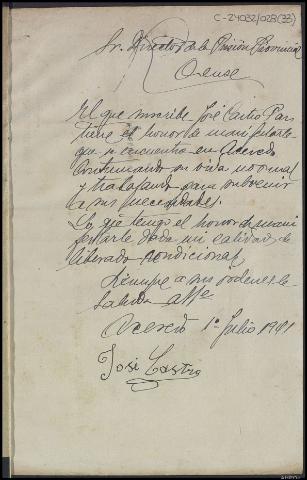 C-24032/028(33)
Sr. Director de la Prisión Provincial
Orense
El que suscribe José Castro
tiene el honor de manifestarle
que se encuentra en Acevedo
continuando su vida normal
y trabajando para subvenir
a sus necesidades.
Lo que tengo el honor de mani
festarle dada mi calidad de
liberado condicional
Siempre a sus ordenes le
saluda atte
Acevedo 1º Julio 1941
José Castro